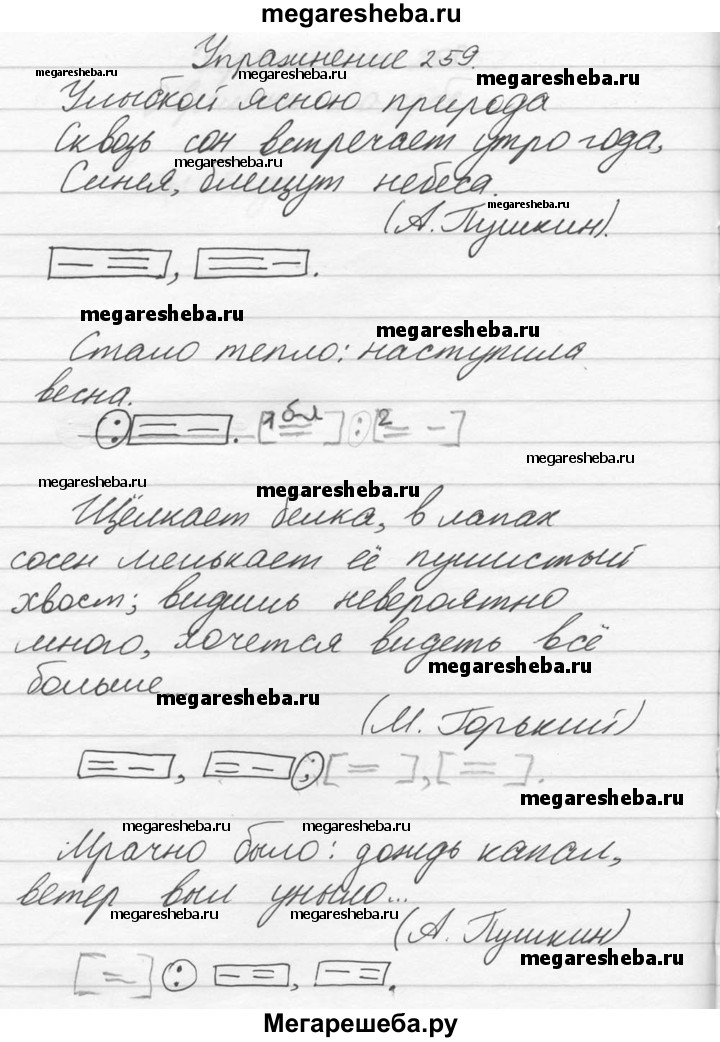 megaresheba.ru
Упражнение 259.
megaresheba.ru
megaresheba.ru
Улыбкой ясною природа
Сквозь сон встречает утро года,
megaresheba.ru
Синея, блещут небеса.
megaresheba.ru
(А. Пушкин).
megaresheba.ru
megaresheba.ru
Стало тепло: наступила
весна.
1 бл 2
megaresheba.ru
megaresheba.ru
megaresheba.ru
Щёлкает белка, в лапах
сосен мелькает её пушистый
хвост; видишь невероятно
много, хочется видеть всё
megaresheba.ru
больше
megaresheba.ru
(М. Горький)
megaresheba.ru
megaresheba.ru
megaresheba.ru
Мрачно было: дождь капал,
ветер выл уныло...
megaresheba.ru
megaresheba.ru
(А. Пушкин)
megaresheba.ru
Мегарешеба.ру